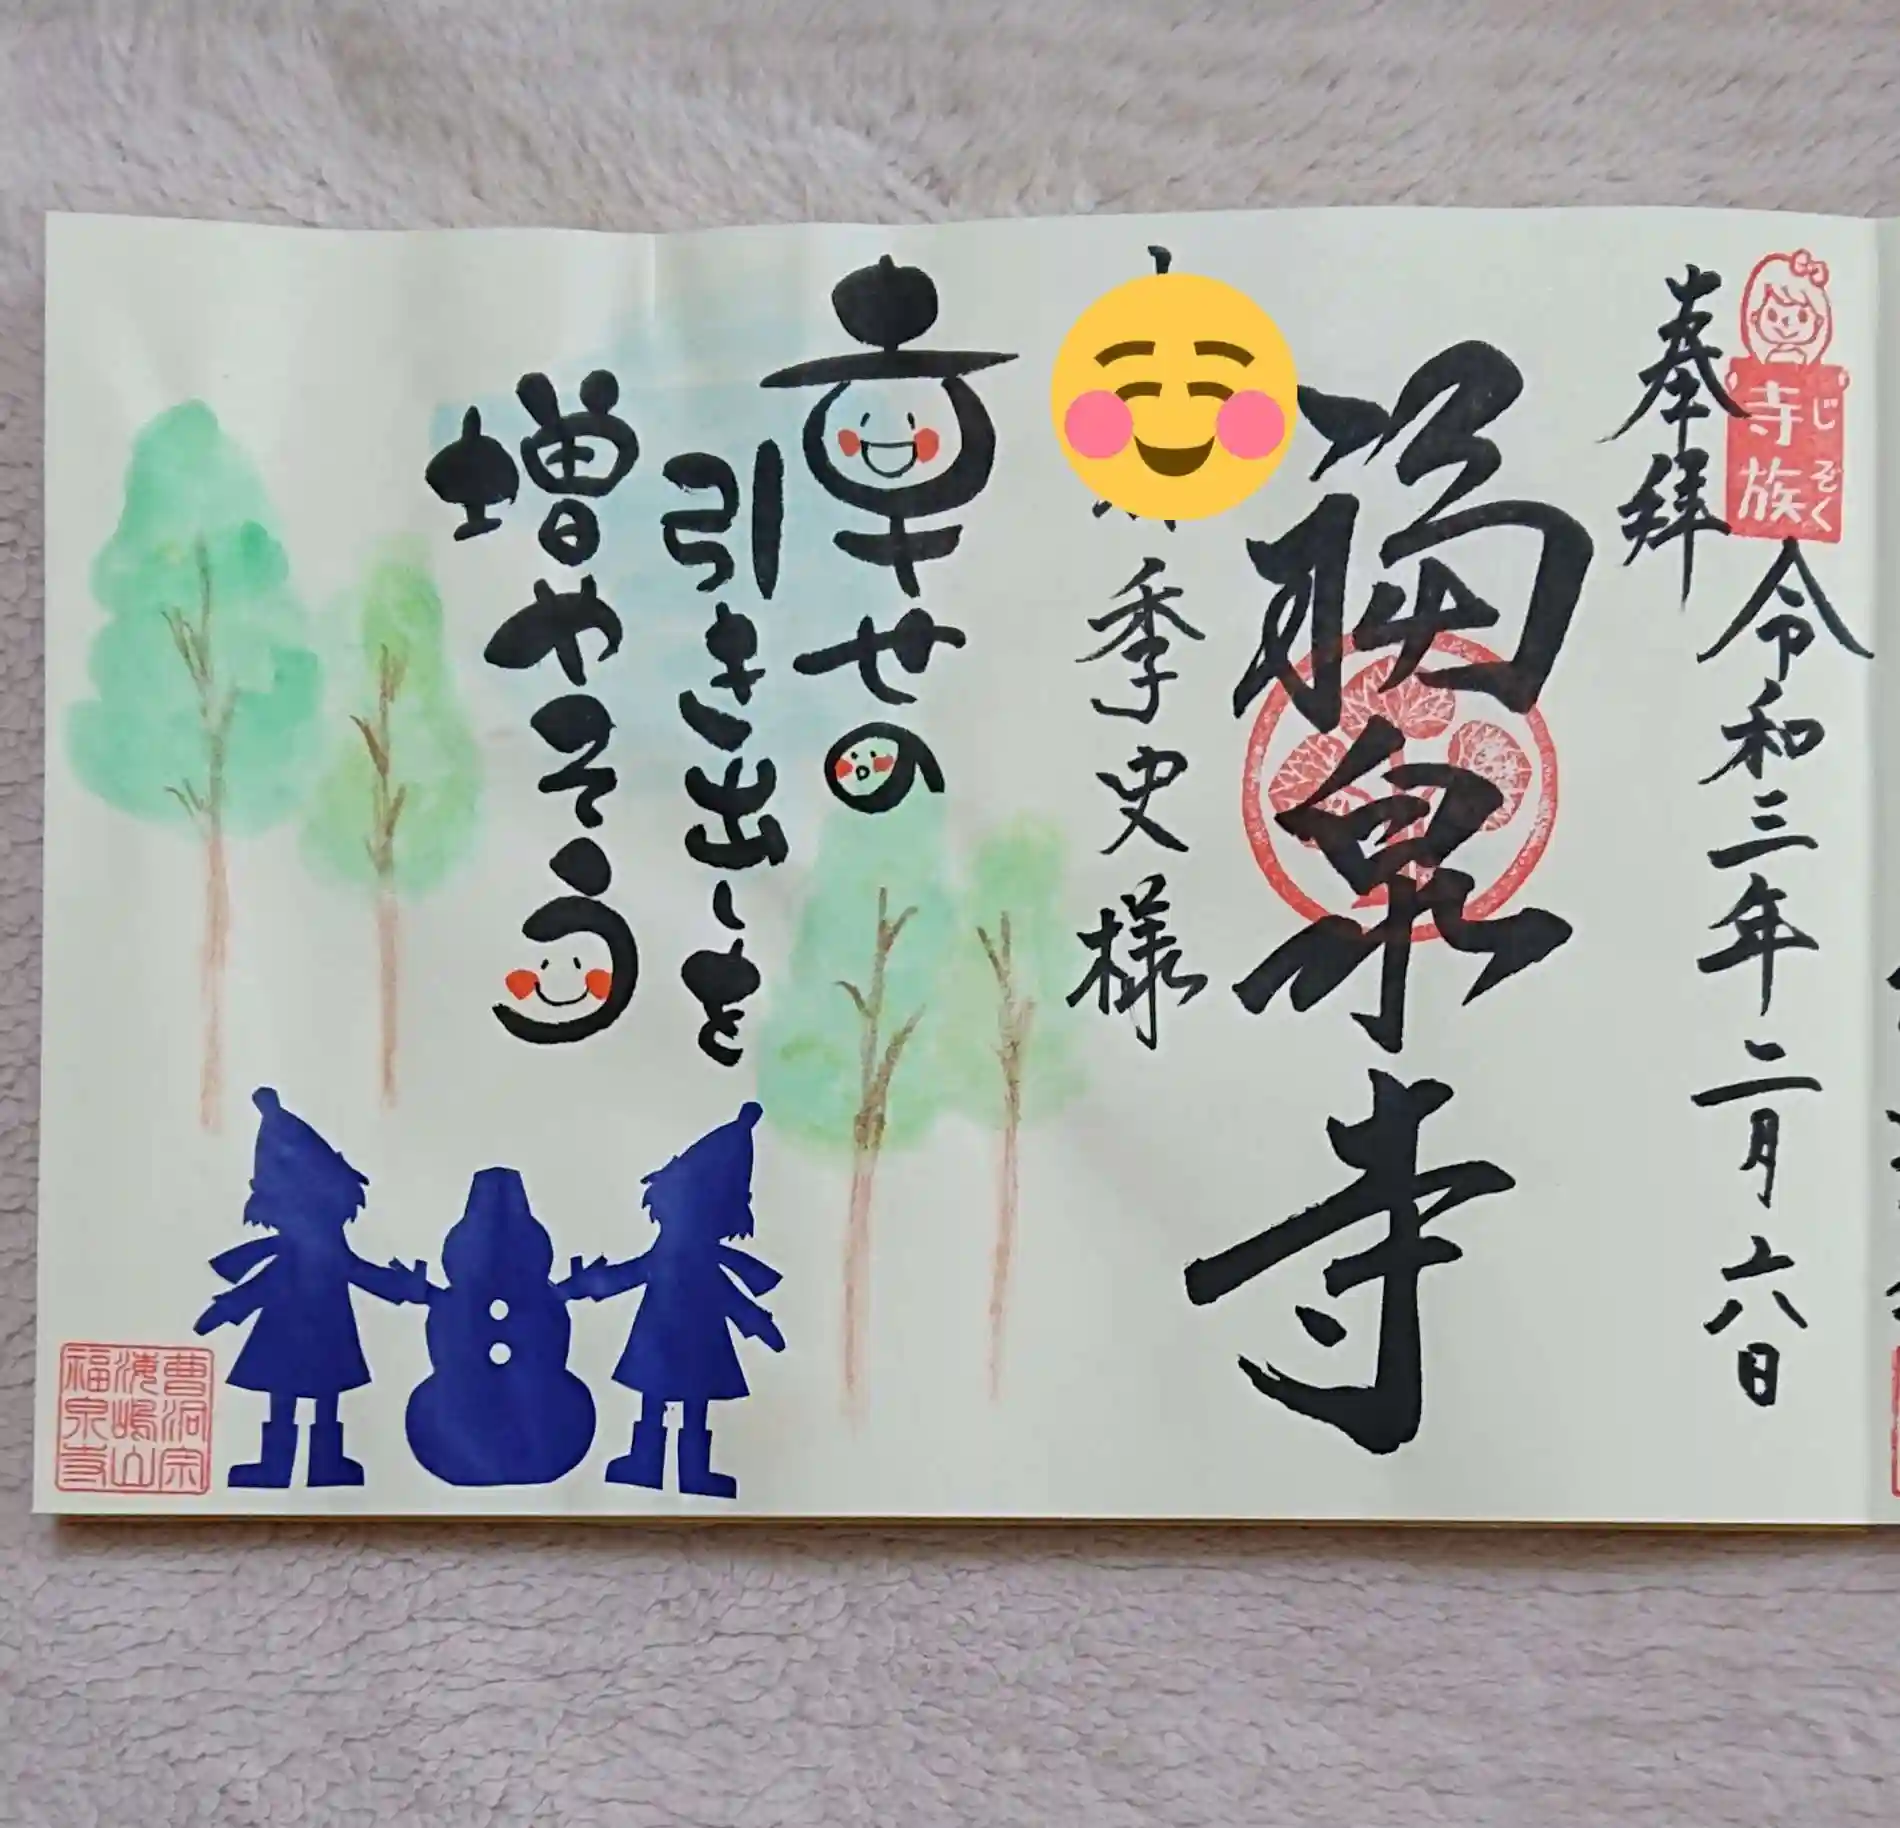 奉拝
寺族
じぞく
令和三年二月六日
福泉寺
季史様
幸せの
引き出しを
増やそう
曹洞宗
海嶋山
福泉寺